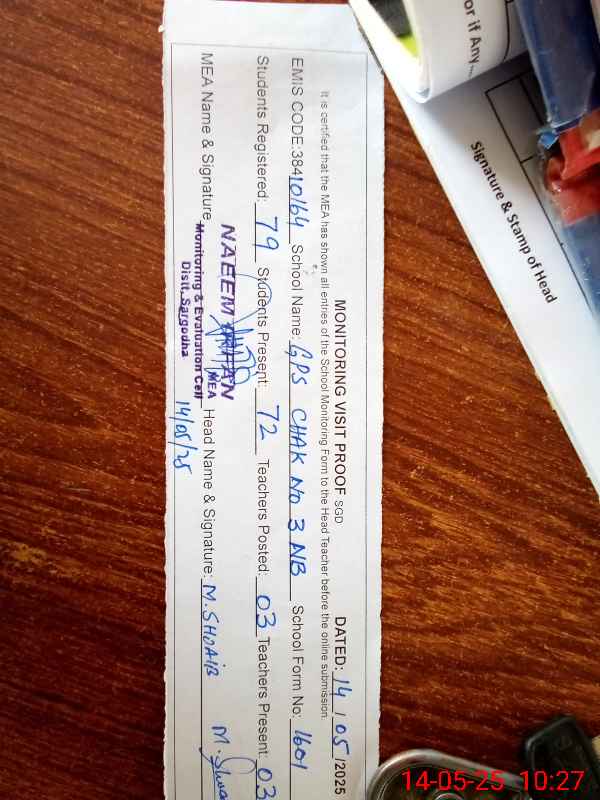 MONITORING VISIT PROOF SGD DATED: 14/05/2025
It is certified that the MEA has shown all entries of the School Monitoring Form to the Head Teacher before the online submission.
EMIS CODE:38410164 School Name: GPS CHAK No 3 NB School Form No: 1601
Students Registered: 79 Students Present: 72 Teachers Posted: 03 Teachers Present: 03
MEA Name & Signature NAEEM IRFAN Head Name & Signature: M. SHOAIB M. Shoaib
MEA
Monitoring & Evaluation Cell
Distt. Sargodha
14/05/25
or if Any...
Signature & Stamp of Head
14-05-25 10:27